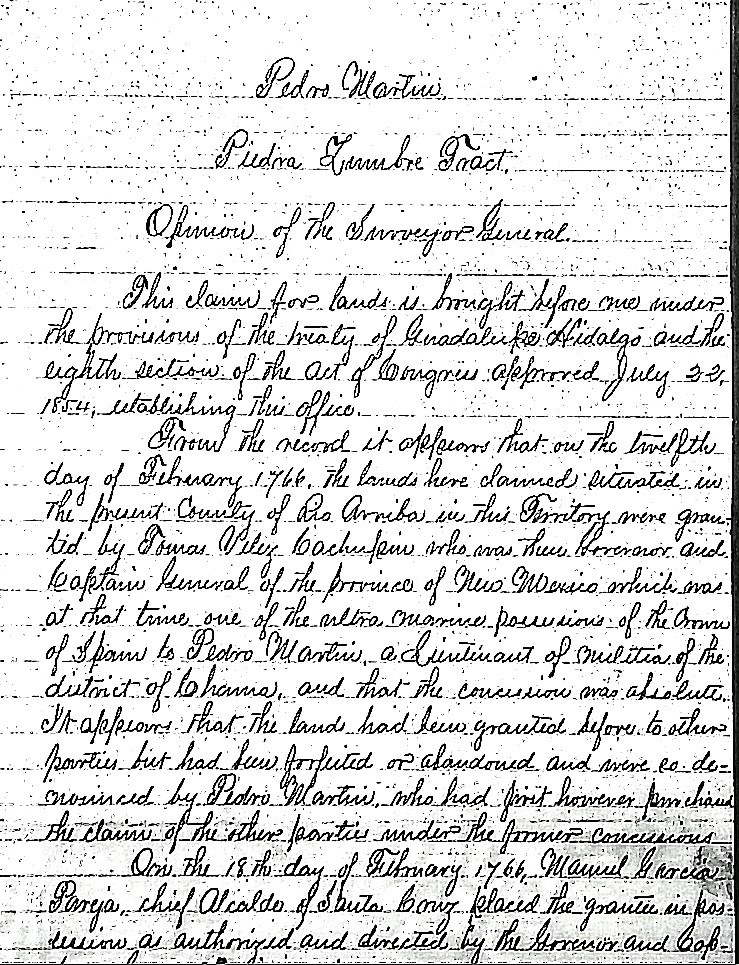 Pedro Martin.
Piedra Lumbre Tract.
Opinion of the Surveyor General.
This claim for lands is brought before me under
the provisions of the treaty of Guadalupe Hidalgo and the
eighth section of the act of Congress approved July 22,
1854, establishing this office.
From the record it appears that on the twelfth
day of February 1766, the lands here claimed situated in
the present County of Rio Arriba in this Territory were gran-
ted by Tomas Velez Cachupin who was then Governor and
Captain General of the province of New Mexico which was
at that time one of the ultra marine possessions of the Crown
of Spain to Pedro Martin, a Lieutenant of militia of the
district of Chama, and that the concession was absolute.
It appears that the land had been granted before to other
parties but had been forfeited or abandoned and were so de-
nounced by Pedro Martin, who had first however purchased
the claim of the other parties under the former concessions
On the 18th day of February 1766, Manuel Garcia
Pareja, chief Alcalde of Santa Cruz placed the grantee in pos-
session as authorized and directed by the Govenor and Cap-